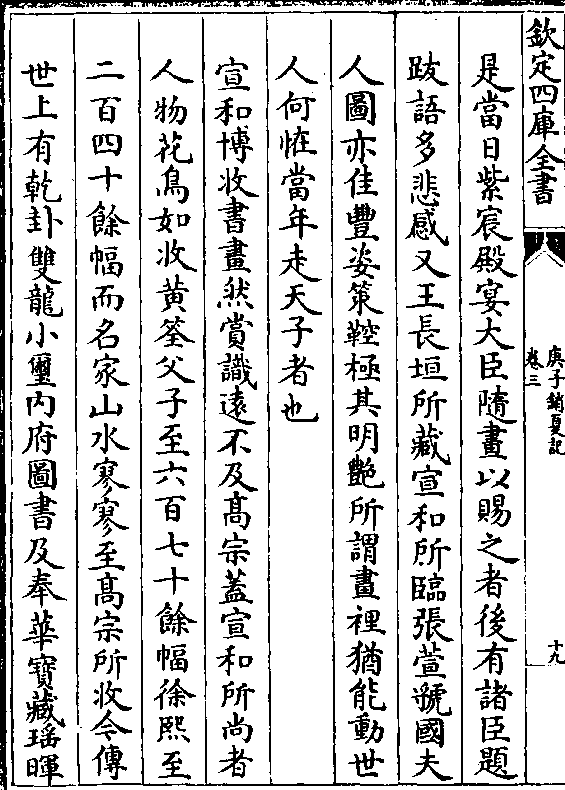 欽定四庫全書
庚子銷夏記
卷三
十九
是當日紫宸殿宴大臣隨畫以賜之者後有諸臣題
跋語多悲感又王長垣所藏宣和所臨張萱虢國夫
人圖亦佳豐姿策鞚極其明艷所謂畫裡猶能動世
人何恠當年走天子者也
宣和博收書畫然賞識遠不及髙宗蓋宣和所尚者
人物花鳥如收黄筌父子至六百七十餘幅徐熙至
二百四十餘幅而名家山水寥寥至髙宗所收令傳
世上有乾卦雙龍小璽内府圖書及奉華寳藏瑶暉